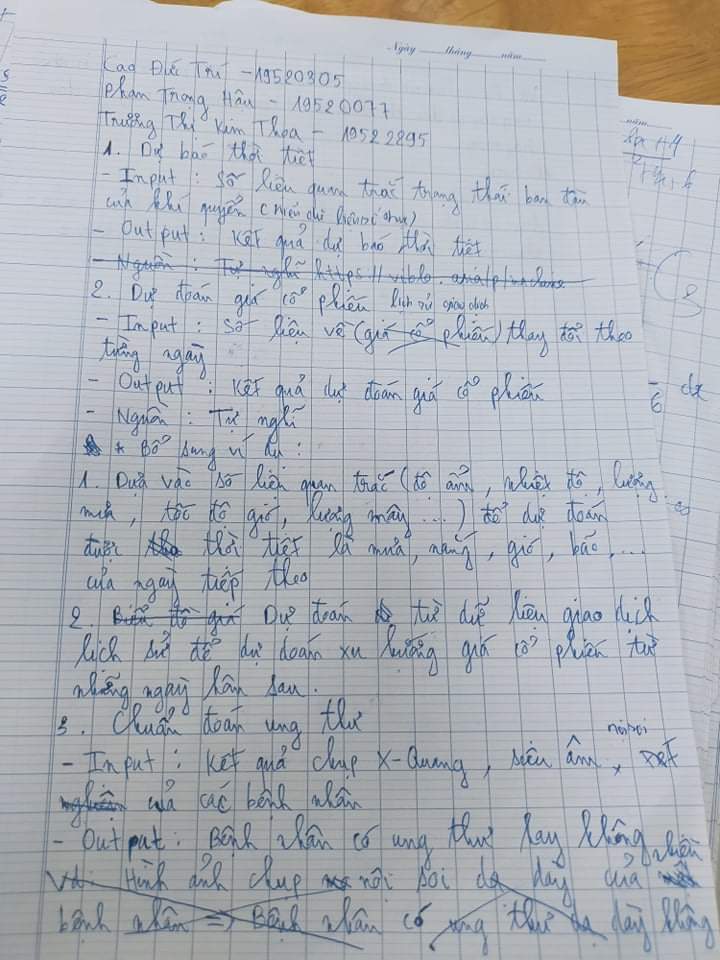 Ngày tháng năm
Cao Đức Trí - 19520305
Phan Trọng Hậu - 19520077
Trương Thị Kim Thoa - 19522295
1. Dự báo thời tiết
- Input : Số liệu quan trắc trạng thái ban đầu
của khí quyển
- Output : Kết quả dự báo thời tiết
- Nguồn : Tự nghĩ https://viblo.asia/p/
2. Dự đoán giá cổ phiếu lịch sử giao dịch
- Input : Số liệu về (giá cổ phiếu) thay đổi theo
từng ngày
- Output : Kết quả dự đoán giá cổ phiếu
- Nguồn : Tự nghĩ
* Bổ sung ví dụ :
1. Dựa vào số liệu quan trắc (độ ẩm, nhiệt độ, lượng
mưa, tốc độ gió, lượng mây ...) để dự đoán
được thời tiết là mưa, nắng, gió, bão, ...
của ngày tiếp theo
2. Biểu đồ giá Dự đoán từ dữ liệu giao dịch
lịch sử để dự đoán xu hướng giá cổ phiếu từ
những ngày hôm sau.
3. Chuẩn đoán ung thư
- Input : Kết quả chụp X-Quang, siêu âm, nội soi
của các bệnh nhân
- Output : Bệnh nhân có ung thư hay không
Vd: Hình ảnh chụp nội soi dạ dày của
bệnh nhân => Bệnh nhân có ung thư dạ dày không